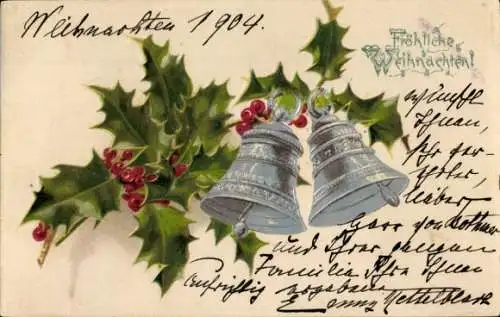 Weihnachten 1904.
Fröhliche
Weihnachten!
wünscht
Ihnen,
sehr
lieber
Herr von
und Ihrer ganzen
Familie Ihre Ihnen
aufrichtig ergebene
Emmy Nettelbeck